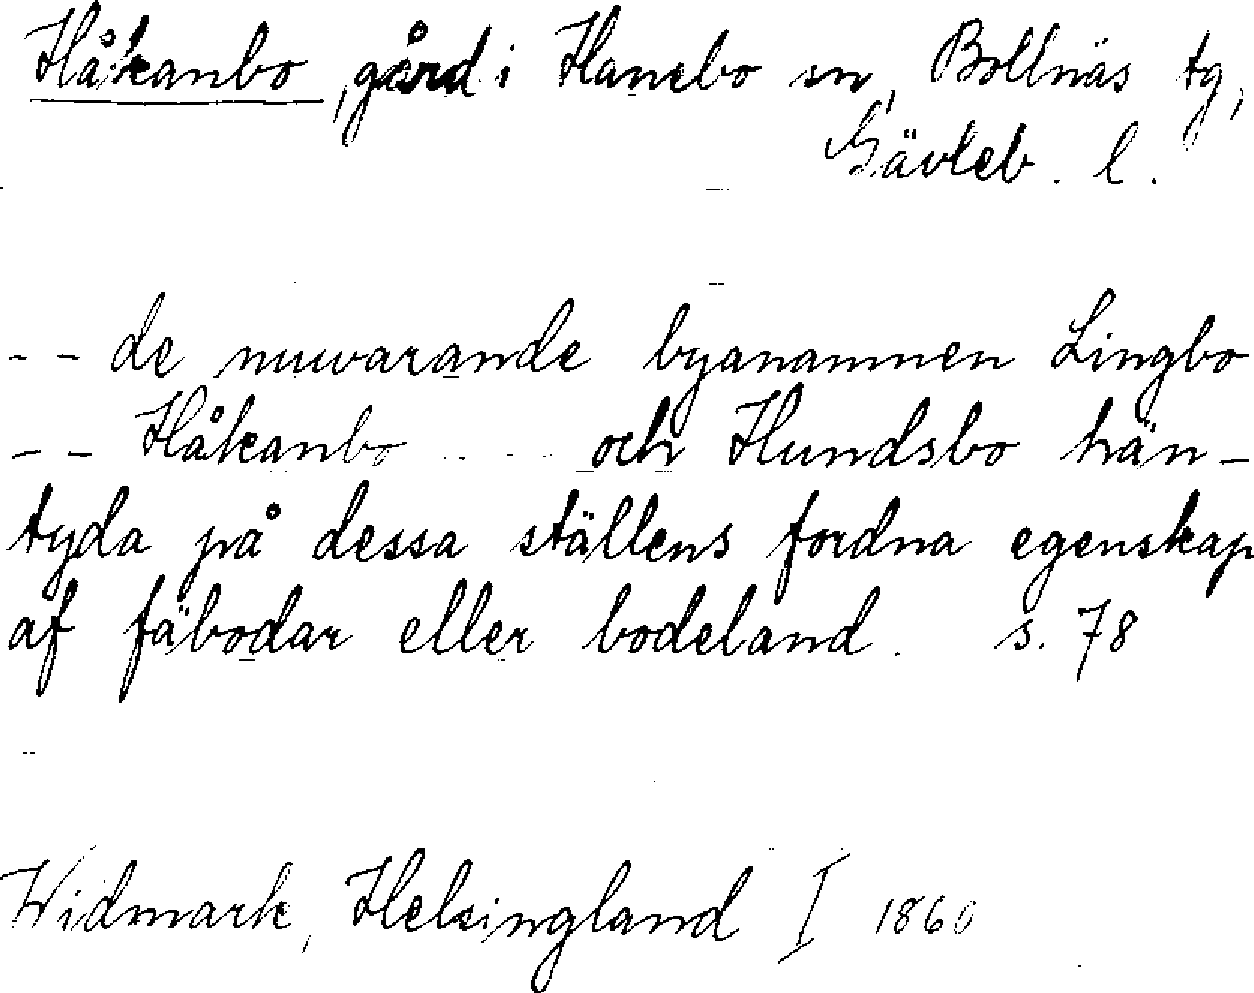 Håkanbo, gård i Hanebo sn, Bollnäs tg,
Gävleb. l.
-- de nuvarande byanamnen Lingbo
-- Håkanbo ---- och Hundsbo hän-
tyda på dessa ställens fordna egenskap
af fäbodar eller bodeland. s. 78
Widmark, Helsingland I 1860